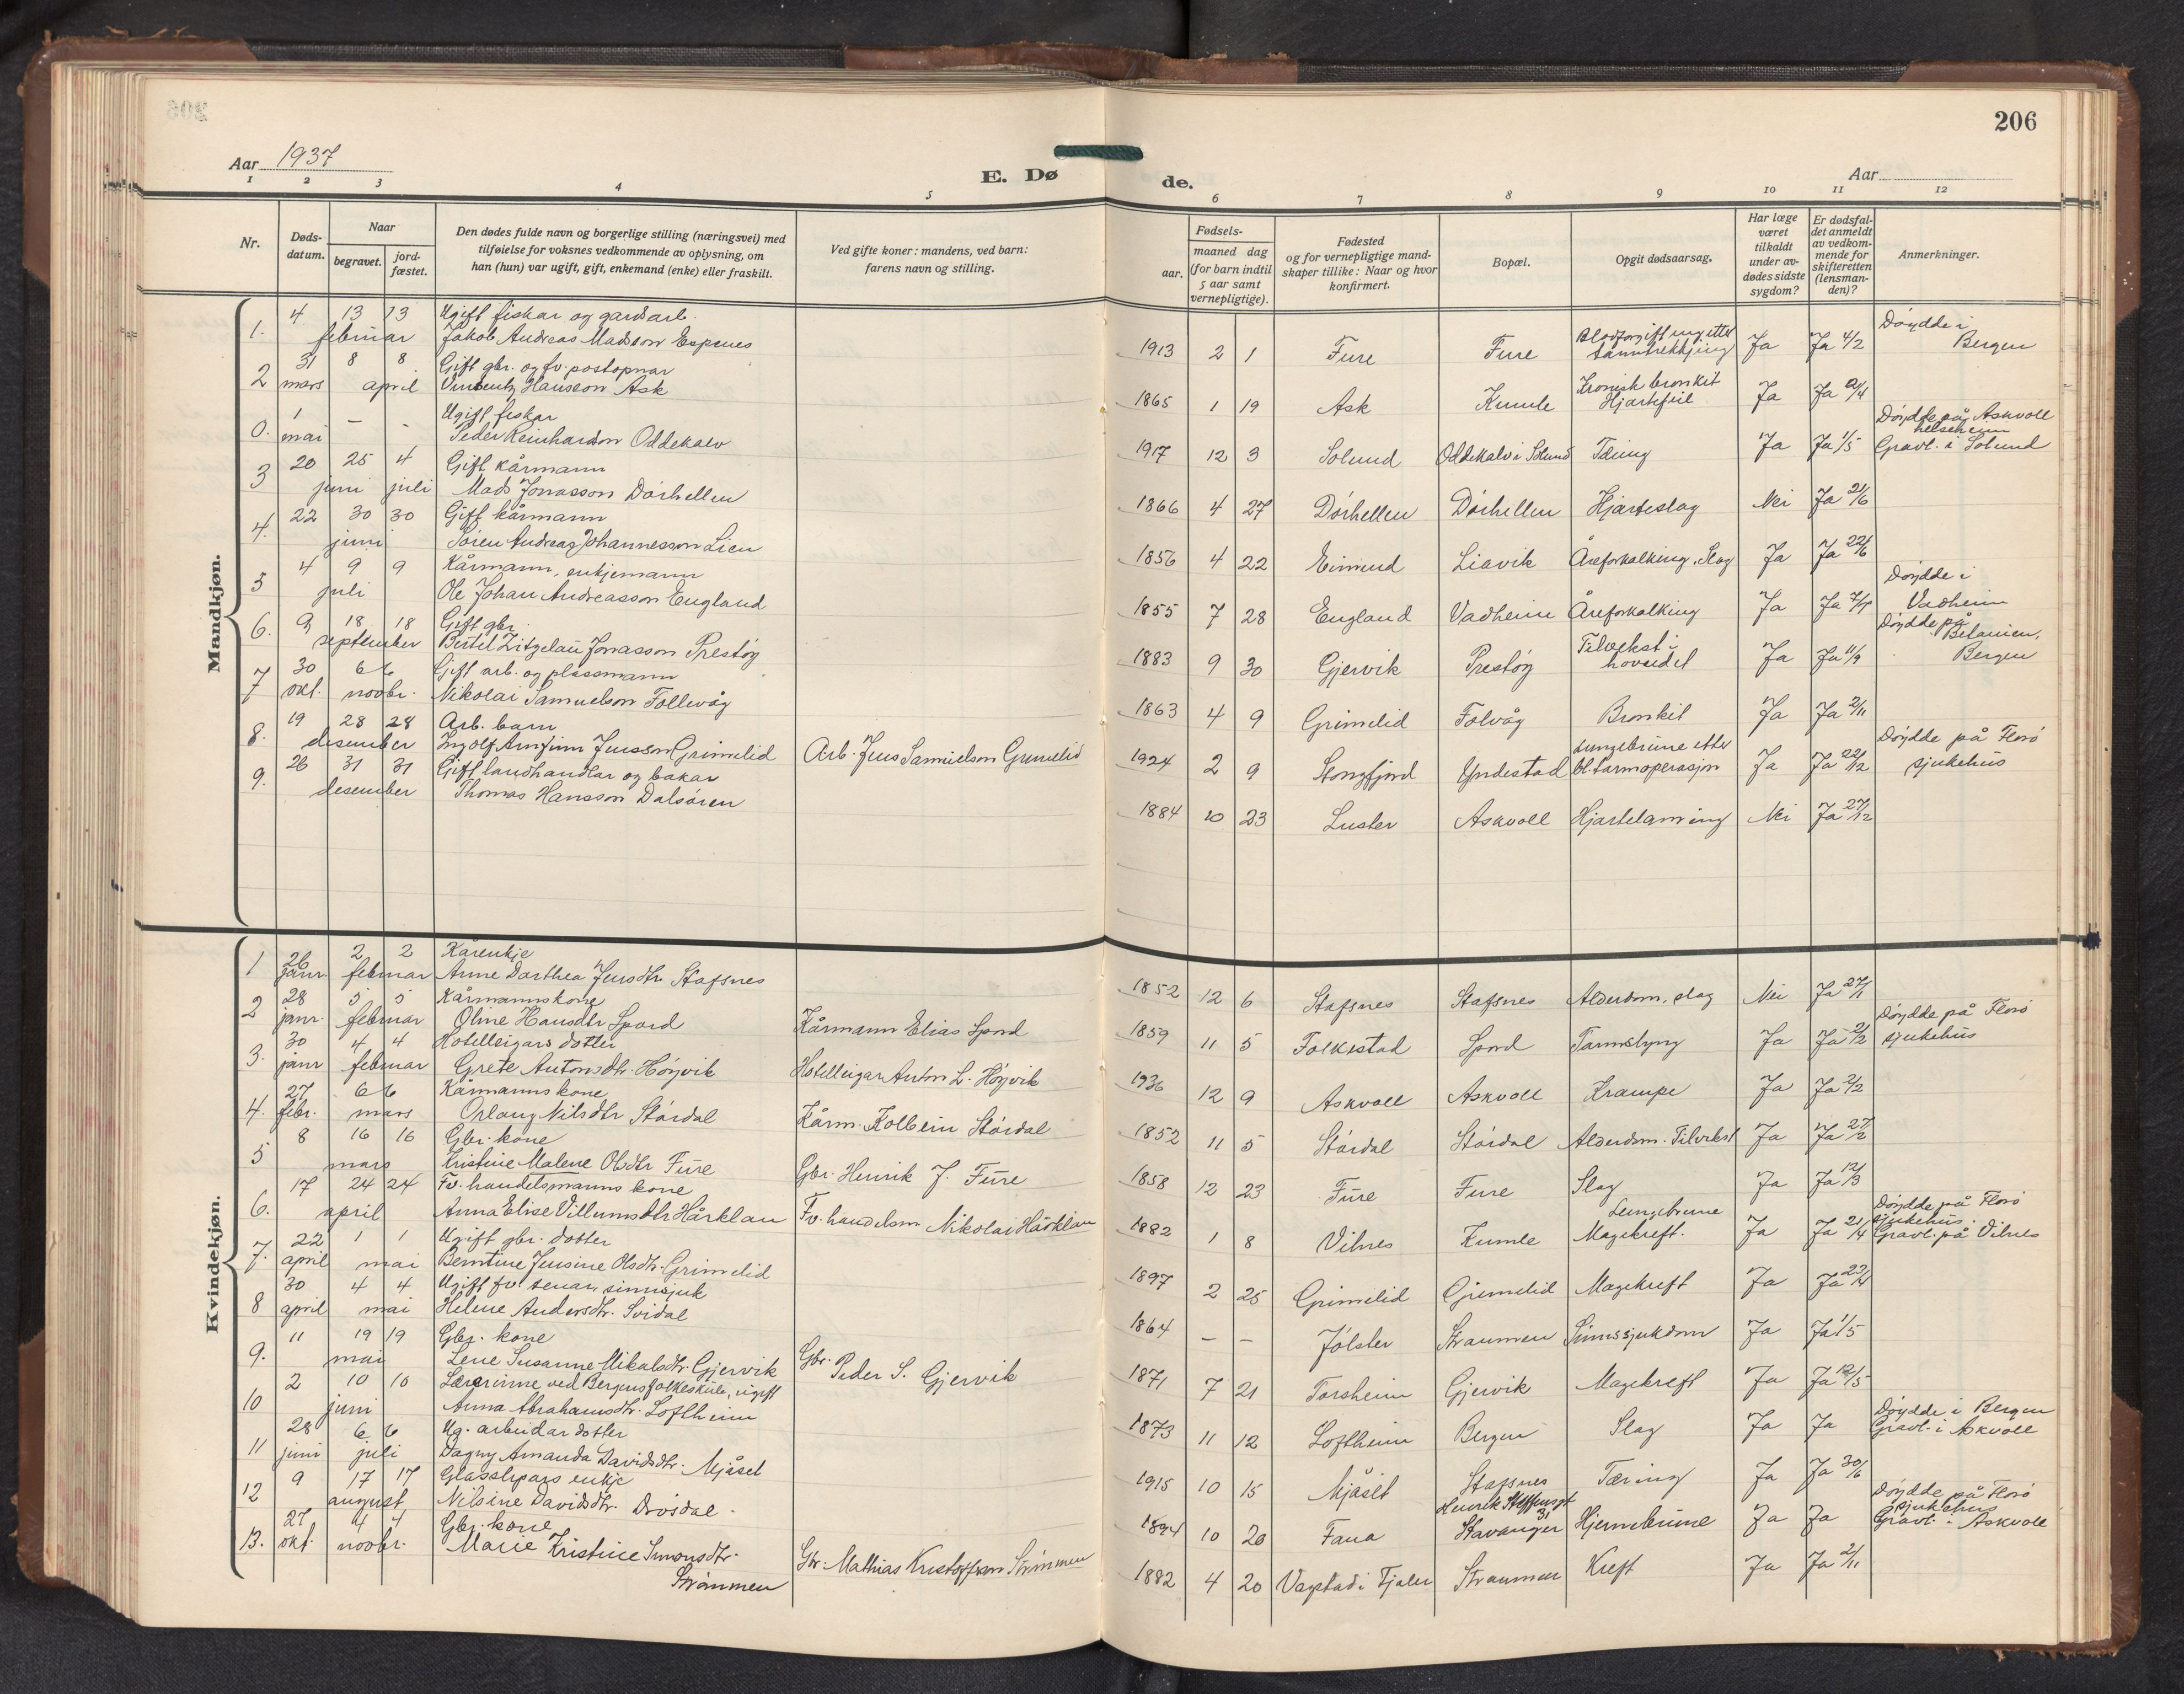 206
Aar 1937
E. Dø
de.
Aar
1 2 3 4 5 6 7 8 9 10 11 12
Nr.
Døds-
datum.
Naar
begravet.
jord-
fæstet.
Den dødes fulde navn og borgerlige stilling (næringsvei) med
tilføielse for voksnes vedkommende av oplysning, om
han (hun) var ugift, gift, enkemand (enke) eller fraskilt.
Ved gifte koner: mandens, ved barn:
farens navn og stilling.
Fødsels-
aar.
maaned dag
(for barn indtil
5 aar samt
vernepligtige).
Fødested
og for vernepligtige mand-
skaper tillike: Naar og hvor
konfirmert.
Bopæl.
Opgit dødsaarsag.
Har læge
været
tilkaldt
under av-
dødes sidste
sygdom?
Er dødsfal-
det anmeldt
av vedkom-
mende for
skifteretten
(lensman-
den)?
Anmerkninger.
Mandkjøn.
4 13 13 Ugift fiskar og gardsarb.
1. februar Jakob Andreas Madsson Espenes
1913 2 1 Fure Fure Blodforgiftning etter tanntrekkjing Ja Ja 4/2 Döydde i Bergen
31 8 8 Gift gbr. og fv. postopnar
2 mars april Hansson Ask
1865 1 19 Ask Kumle Kronisk bronkit Hjartefeil Ja Ja 2/4
1 - - Ugift fiskar
0. mai Peder Reinhardson Oddekalv
1917 12 3 Solund Oddekalv i Solund Tæring Ja Ja 1/5 Döydde på Askvoll helseheim Gravl. i Solund
20 25 4 Gift kårmann
3 juni juli Mads Jonasson Dörhellen
1866 4 27 Dörhellen Dörhellen Hjarteslag Nei Ja 21/6
22 30 30 Gift kårmann
4. juni Sören Andreas Johannesson Lien
1856 4 22 Eimind Liavik Åreforkalking, Slag Ja Ja 22/6
4 9 9 Kårmann, enkjemann
5 juli Ole Johan Andreasson England
1855 7 28 England Vadheim Åreforkalking Ja Ja 7/7 Döydde i Vadheim
9 18 18 Gift gbr.
6. september Bertel Zitzelau Jonasson Prestöy
1883 9 30 Gjervik Prestöy Tilvekst i hovudet Ja Ja 11/9 Döydde på Betanien, Bergen
30 6 6 Gift arb. og plassmann
7 okt. novbr. Nikolai Samuelson Follevåg
1863 4 9 Grimelid Folvåg Bronkit Ja Ja 2/11
19 28 28 Arb. barn
8. desember Ingolf Arnfinn Jensson Grimelid Arb. Jens Samuelson Grimelid
1924 2 9 Stongfjord Yndestad Lungebrune etter bl.tarmoperasjon Ja Ja 22/12 Döydde på Florö sjukehus
26 31 31 Gift landhandlar og bakar
9. desember Thomas Hansson Dalsören
1884 10 23 Luster Askvoll Hjartelaming Nei Ja 27/12
Kvindekjøn.
26 2 2 Kårenkje
1 janr. februar Anne Darthea Jensdtr Stafsnes
1852 12 6 Stafsnes Stafsnes Alderdom, slag Nei Ja 27/1
28 5 5 Kårmannskone
2 janr. februar Oline Hansdtr Spord Kårmann Elias Spord
1859 11 5 Folkestad Spord Tarmslyng Ja Ja 2/2 Döydde på Florö sjukehus
30 4 4 Hotelleigars dotter
3. janr februar Grete Antonsdtr. Höyvik Hotelleigar Anton L. Höyvik
1936 12 9 Askvoll Askvoll Krampe Ja Ja 2/2
27 6 6 Kårmannskone
4. febr. mars Orlaug Nilsdtr Stördal Kårm. Kolbein Stördal
1852 11 5 Stördal Stördal Alderdom. Tilvekst Ja Ja 27/2
8 16 16 Gbr. kone
5 mars Kristine Malene Olsdtr Fure Gbr. Henrik J. Fure
1858 12 23 Fure Fure Slag Ja Ja 12/3
17 24 24 Fv. handelsmanns kone
6. april Anna Elise Villumsdtr Hårklau Fv. handelsm Nikolai Hårklau
1882 1 8 Vilnes Kumle Lungebrune Magekreft. Ja Ja 21/4 Döydde på Florö sjukehus. Gravl. på Vilnes
22 1 1 Ugift gbr. dotter
7. april mai Berntine Jensine Olsdtr. Grimelid
1897 2 25 Grimelid Grimelid Magekreft Ja Ja 23/4
30 4 4 Ugift fv. tenar, sinnsjuk
8 april mai Helene Andersdtr. Svidal
1864 - - Jölster Straumen Sinnssjukdom Ja Ja 1/5
11 19 19 Gbr. kone
9. mai Lene Susanne Mikalsdtr. Gjervik Gbr. Peder S. Gjervik
1871 7 21 Torsheim Gjervik Magekreft Ja Ja 12/5
2 10 10 Lærerinne ved Bergens folkeskule, ugift
10 juni Anna Abrahamsdtr. Loftheim
1873 11 12 Loftheim Bergen Slag Ja Ja Döydde i Bergen Gravl. i Askvoll
28 6 6 Ug. arbeidar dotter
11 juni juli Dagny Amanda Davidsdtr. Mjåset
1915 10 15 Mjåset Stafsnes Tæring Ja Ja 30/6
9 17 17 Glasslipars enkje
12 august Nilsine Davidsdtr. Drösdal.
1894 10 20 Fana Henrik Steffensgt 31 Stavanger Hjernebrune Ja Ja Döydde på Florö sjukehus Gravl. i Askvoll
27 4 4 Gbr. kone
13. okt. novbr. Marie Kristine Simonsdtr. Strömmen Gbr. Mathias Kristofferson Strömmen
1882 4 20 Vagstad i Fjaler Straumen Kreft Ja Ja 2/11